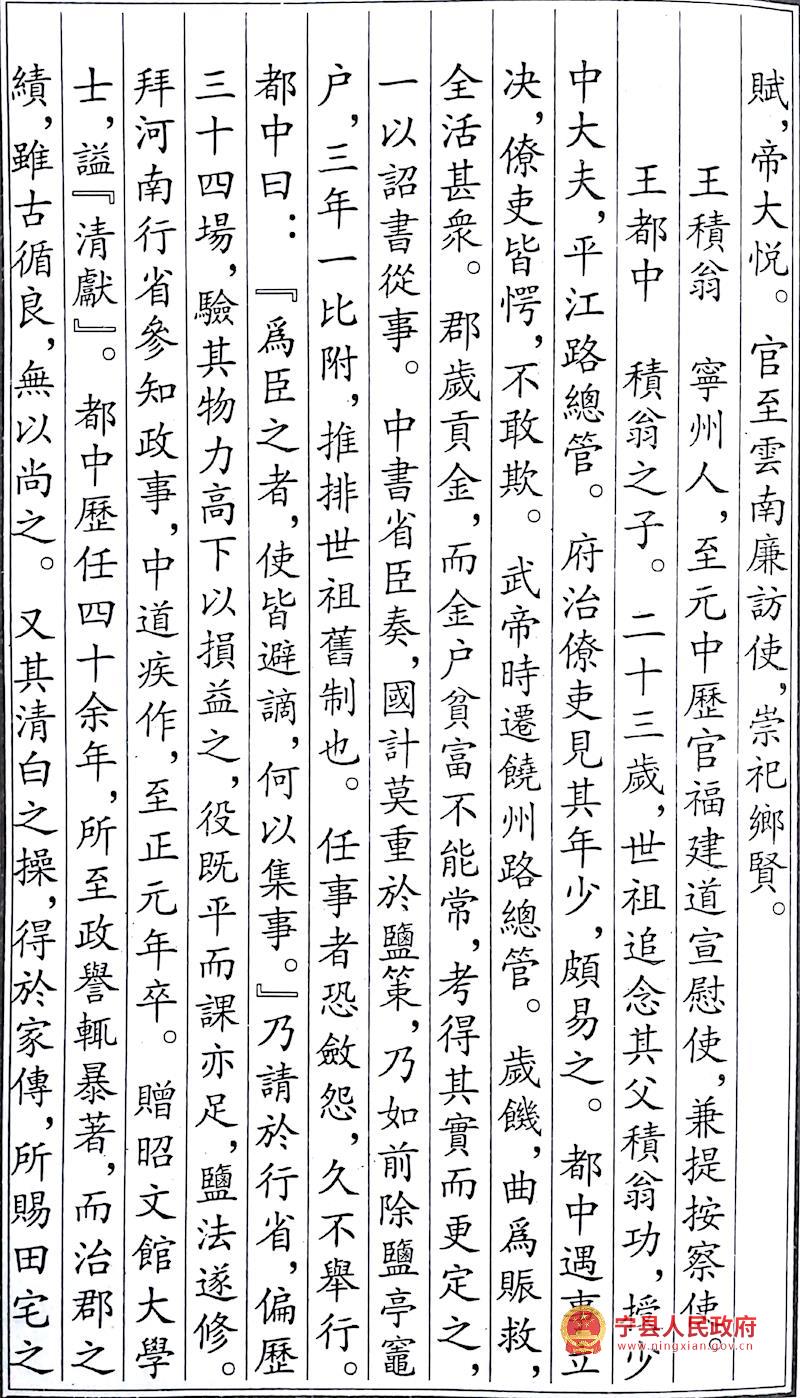 賦，帝大悅。官至雲南廉訪使，崇祀鄉賢。
王積翁　寧州人，至元中歷官福建道宣慰使，兼提按察使。
王都中　積翁之子。二十三歲，世祖追念其父積翁功，授少
中大夫，平江路總管。府治僚吏見其年少，頗易之。都中遇事立
決，僚吏皆愕，不敢欺。武帝時遷饒州路總管。歲饑，曲爲賑救，
全活甚衆。郡歲貢金，而金户貧富不能常，考得其實而更定之，
一以詔書從事。中書省臣奏，國計莫重於鹽策，乃如前除鹽亭竈
户，三年一比附，推排世祖舊制也。任事者恐斂怨，久不舉行。
都中曰：『爲臣之者，使皆避謫，何以集事。』乃請於行省，偏歷
三十四場，驗其物力高下以損益之，役既平而課亦足，鹽法遂修。
拜河南行省參知政事，中道疾作，至正元年卒。贈昭文館大學
士，謚『清獻』。都中歷任四十余年，所至政譽輒暴著，而治郡之
績，雖古循良，無以尚之。又其清白之操，得於家傳，所賜田宅之
宁县人民政府
www.ningxian.gov.cn